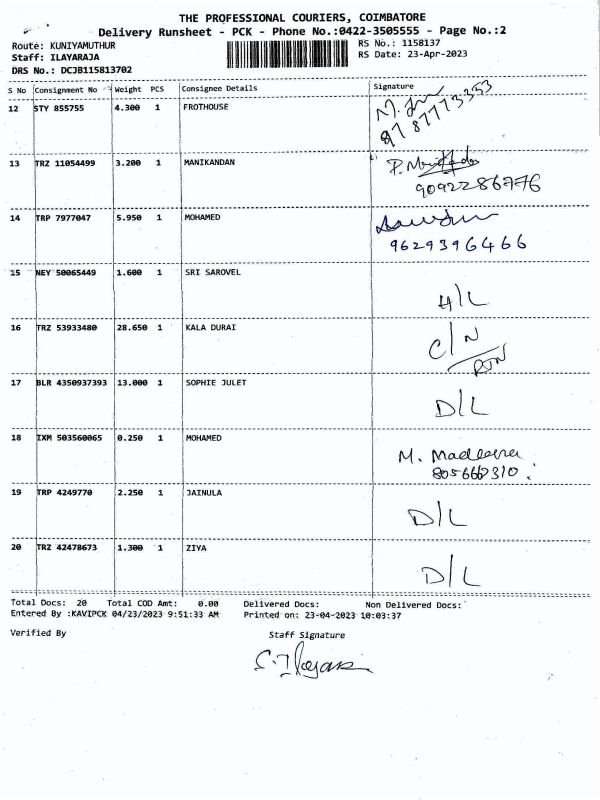 THE PROFESSIONAL COURIERS, COIMBATORE
Delivery Runsheet - PCK - Phone No.:0422-3505555 - Page No.:2
Route: KUNIYAMUTHUR RS No.: 1158137
Staff: ILAYARAJA RS Date: 23-Apr-2023
DRS No.: DCJB115813702
S No Consignment No Weight PCS Consignee Details Signature
12 STY 855755 4.300 1 FROTHOUSE
8787773353
13 TRZ 11054499 3.200 1 MANIKANDAN
9092286776
14 TRP 7977047 5.950 1 MOHAMED
9629396466
15 NEY 50065449 1.600 1 SRI SAROVEL
H/L
16 TRZ 53933480 28.650 1 KALA DURAI
C/N
RTN
17 BLR 4350937393 13.000 1 SOPHIE JULET
D/L
18 IXM 503560065 0.250 1 MOHAMED
M.
19 TRP 4249770 2.250 1 JAINULA
D/L
20 TRZ 42478673 1.300 1 ZIYA
D/L
Total Docs: 20 Total COD Amt: 0.00 Delivered Docs: Non Delivered Docs:
Entered By :KAVIPCK 04/23/2023 9:51:33 AM Printed on: 23-04-2023 10:03:37
Verified By Staff Signature